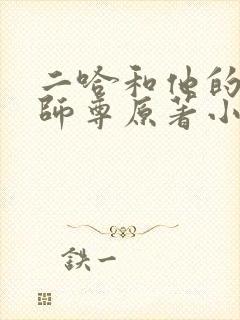 二哈和他的
師尊原著小
鉄一